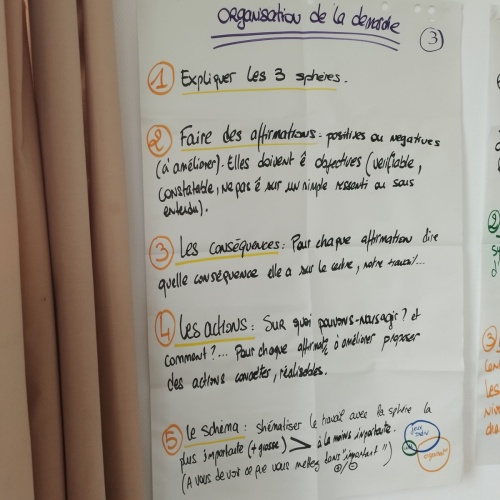 Organisation de la demarche
3
1 Expliquer les 3 sphères.
2 Faire des affirmations : positives ou negatives
(à améliorer). Elles doivent ê objectives (verifiable,
constatable, ne pas ê sur un simple ressenti ou sous
entendu).
3 Les conséquences : Pour chaque affirmation dire
quelle conséquence elle a sur le centre, notre travail...
4 Les actions : Sur quoi pouvons-nous agir ? et
comment ?... Pour chaque affirmat° à améliorer proposer
des actions concrètes, réalisables.
5 Le schéma : shématiser le travail avec la sphère la
plus importante (+ grosse) > à la moins importante.
(A vous de voir ce que vous mettez dans "important")